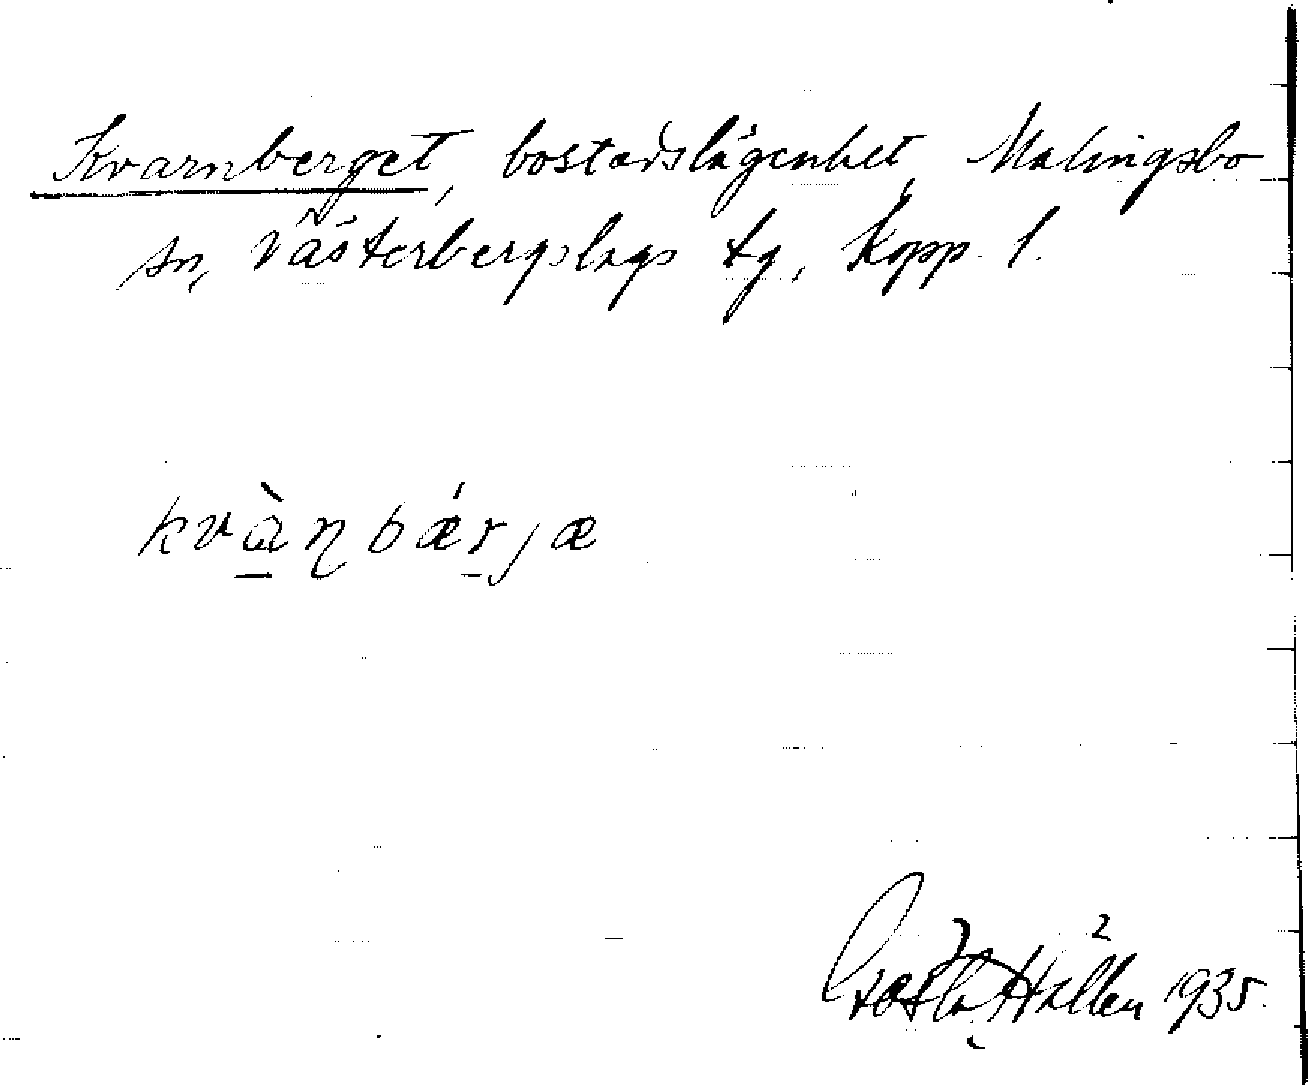 Kvarnberget, bostadslägenhet, Malingsbo
sn, Västerbergslags tg, Kopp. l.
kvàṇbǽrjæ
Gösta Hallén 1935.